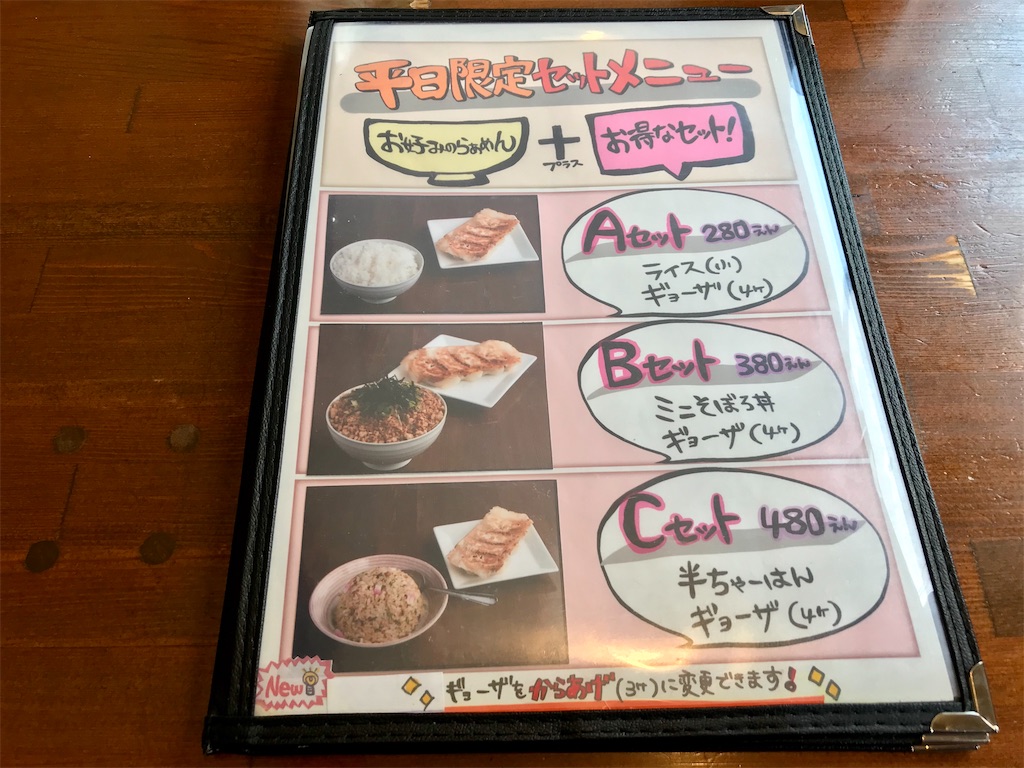 平日限定セットメニュー
お好みのらぁめん
＋
プラス
お得なセット!
Aセット 280えん
ライス(小)
ギョーザ(4ヶ)
Bセット 380えん
ミニそぼろ丼
ギョーザ(4ヶ)
Cセット 480えん
半ちゃーはん
ギョーザ(4ヶ)
New
ギョーザをからあげ(3ヶ)に変更できます!